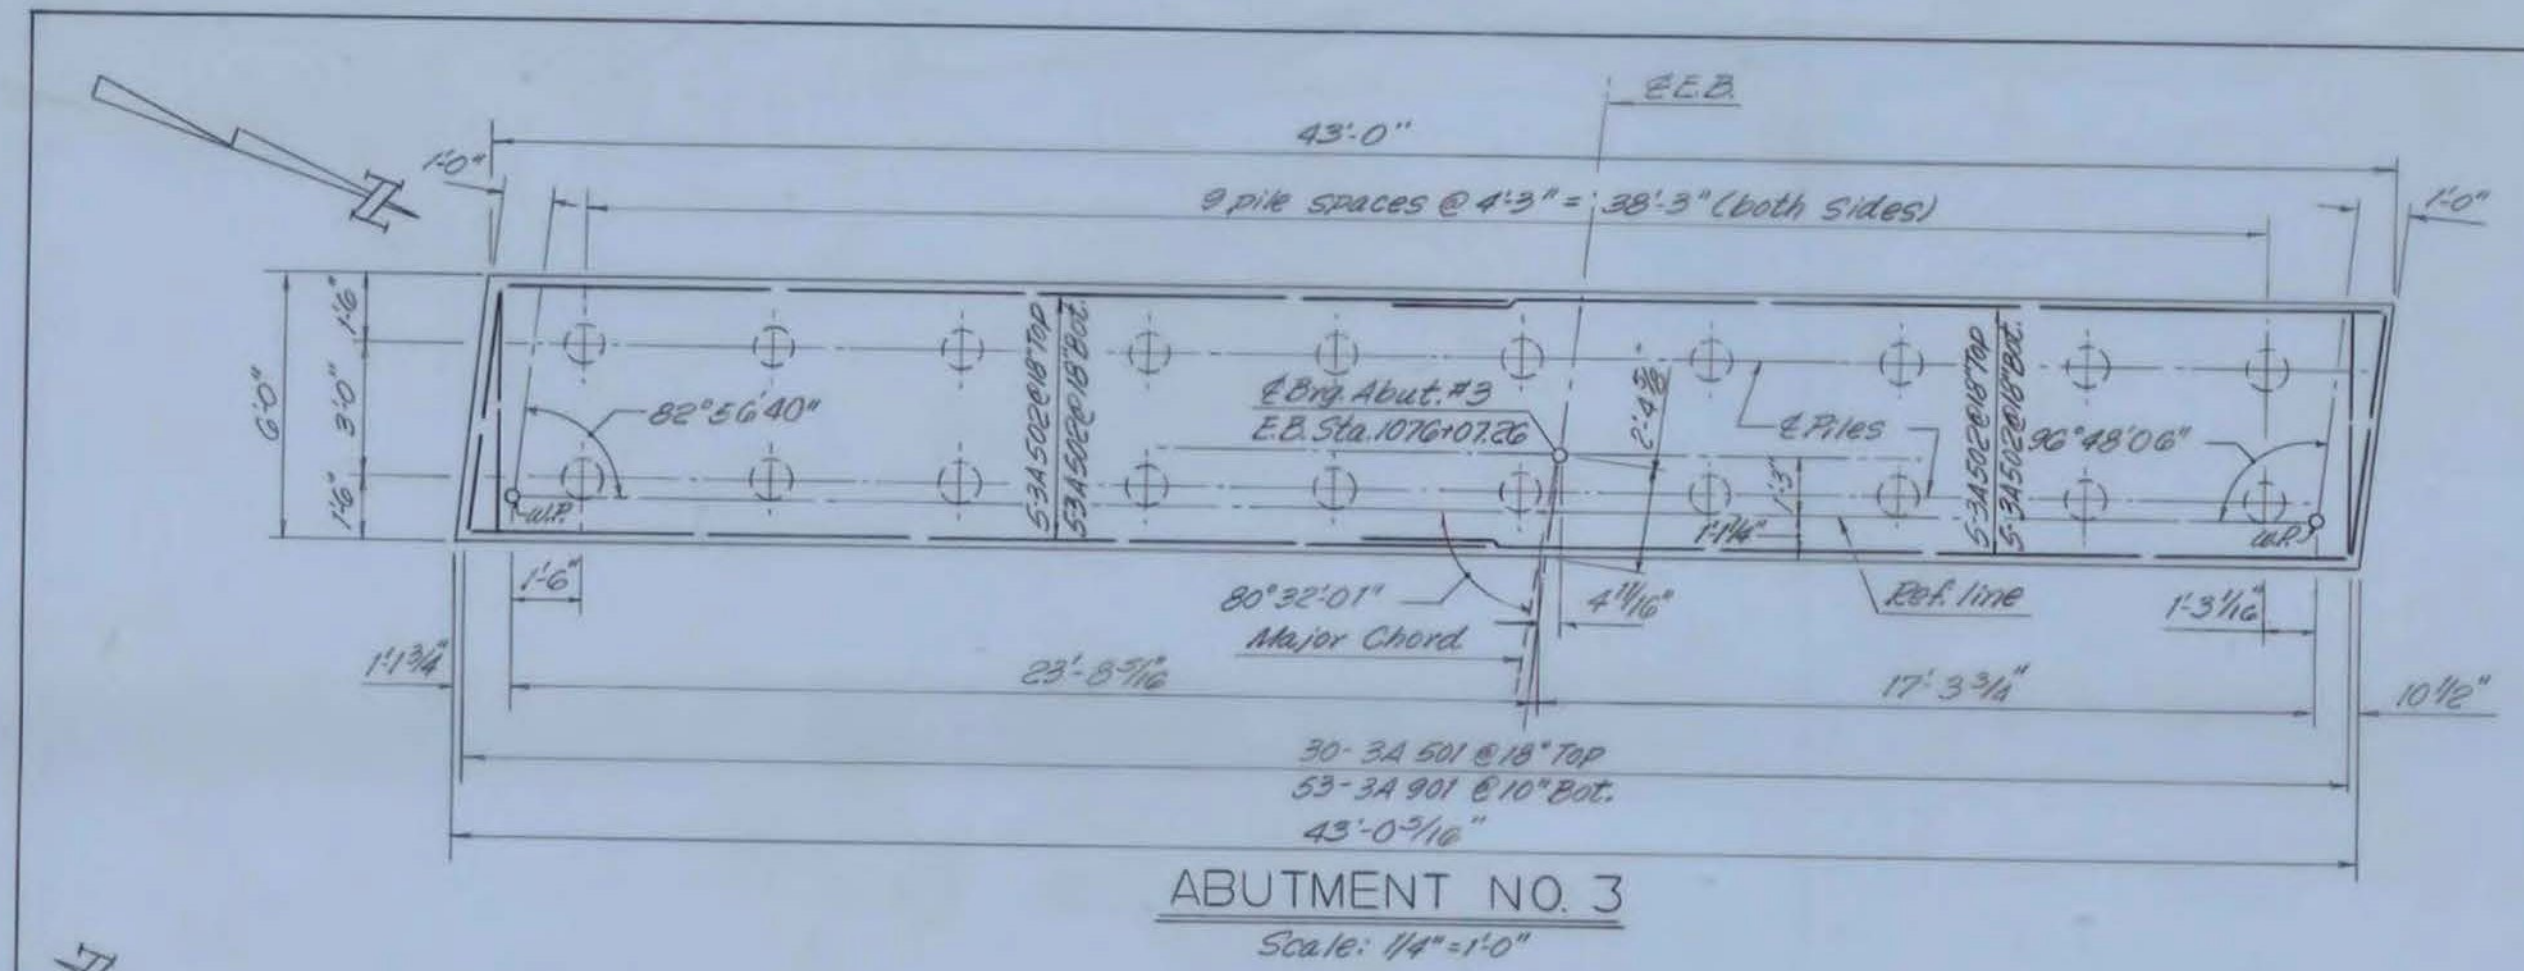 ℄ E.B.
43'-0"
1'-0"
9 pile spaces @ 4'-3" = 38'-3" (both sides)
1'-0"
1'-6"
3'-0"
1'-6"
6'-0"
82°56'40"
5-3A502@18"Top
53A502@18"Bot.
℄ Brg. Abut. #3
E.B. Sta. 1076+07.26
2'-4 5/8"
℄ Piles
5-3A502@18"Top
5-3A502@18"Bot.
96°48'06"
W.P.
1'-3"
1'-1 1/4"
W.P.
1'-6"
80°32'01"
Major Chord
4 11/16"
Ref. line
1'-3 1/16"
1'-1 3/4"
23'-8 5/16"
17'-3 3/4"
10 1/2"
30-3A 501 @ 18" Top
53-3A 901 @ 10" Bot.
43'-0 3/16"
ABUTMENT NO. 3
Scale: 1/4"=1'-0"